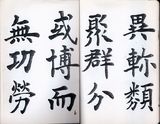 異軫類
聚群分
或博而
無功勞